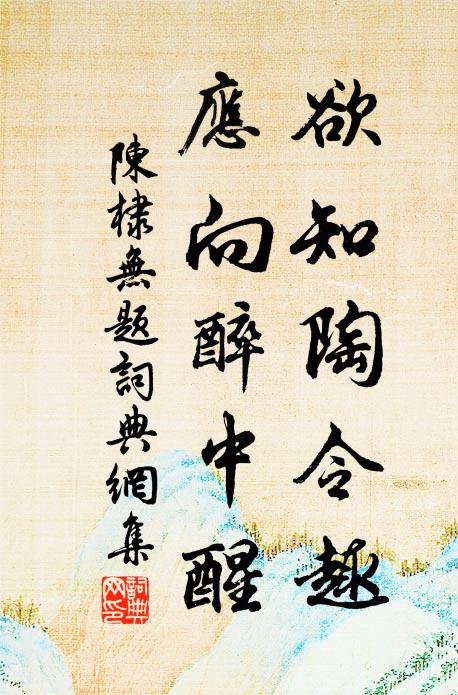 欲知陶令趣
應向醉中醒
陳棣無題詞典網集
詞典網印